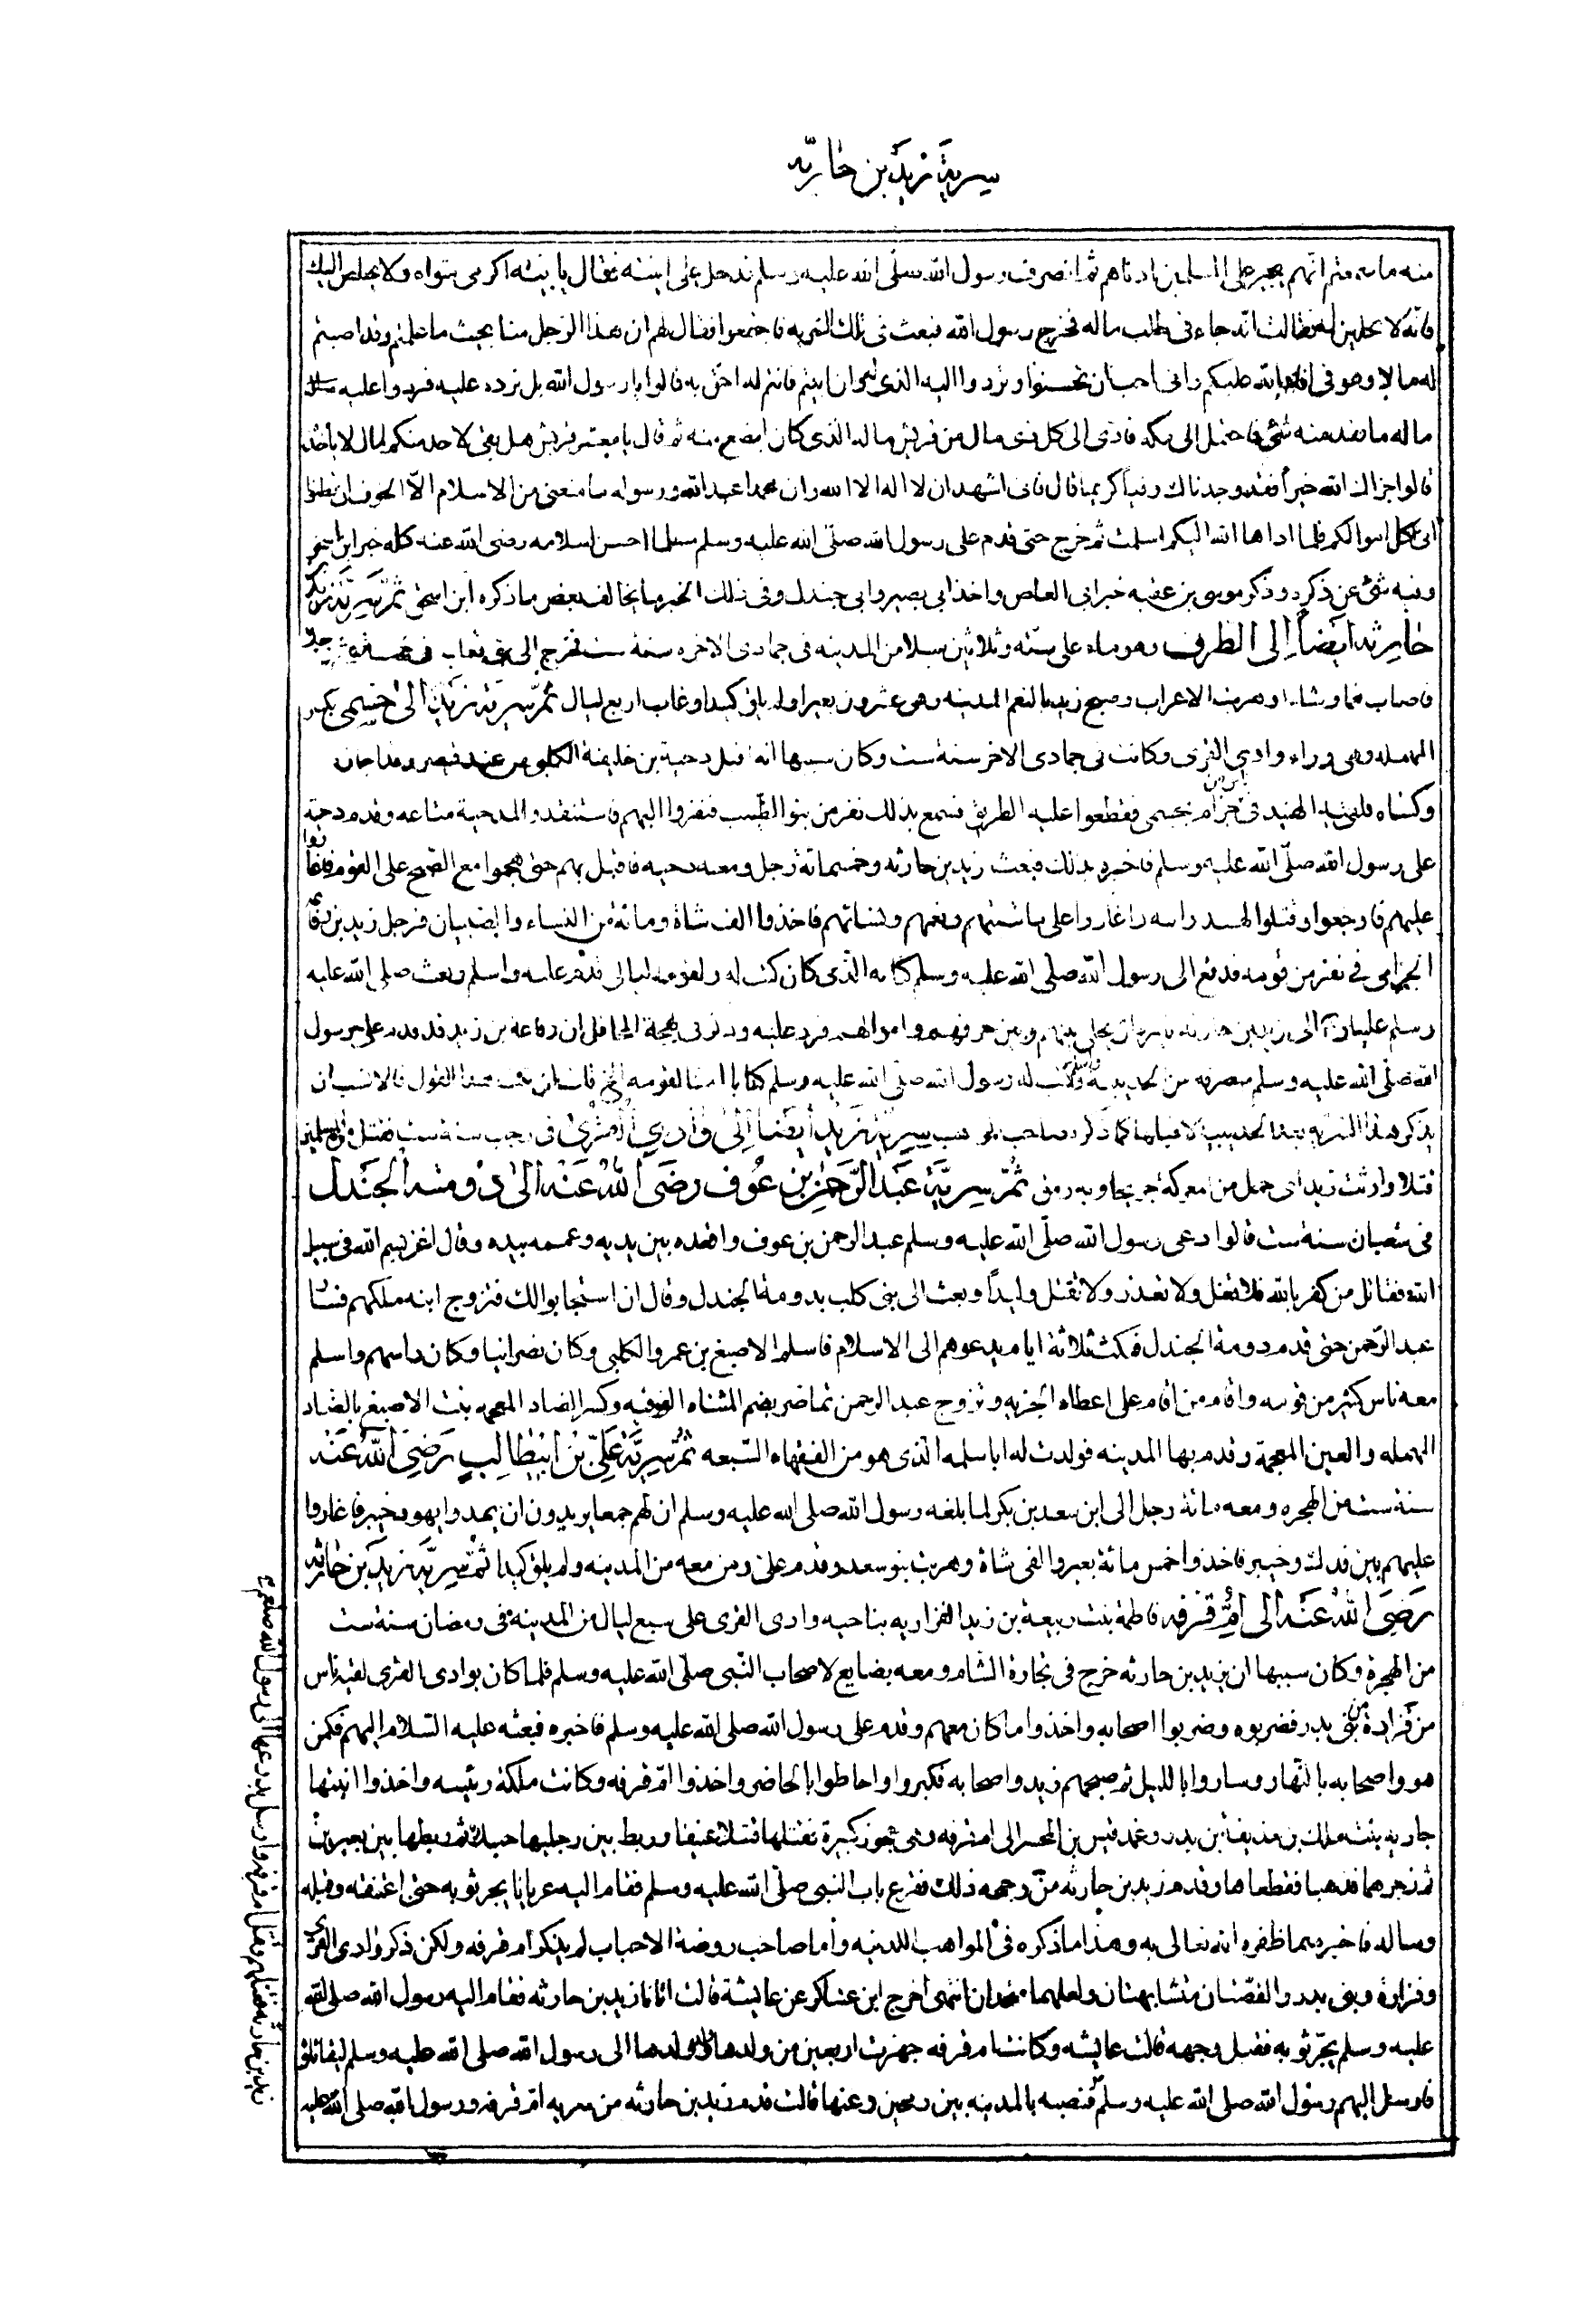 سرية زيد بن حارثه
منه ما سمعتم انهم يجير على المسلمين ادناهم ثم انصرف رسول الله صلى الله عليه وسلم فدخل على ابنته فقال يا بنيه اكرمى مثواه ولا يخلص اليك
فانك لا تحلين له فقالت انه جاء فى طلب ماله فخرج رسول الله فبعث فى تلك السريه فاجتمعوا فقال لهم ان هذا الرجل منا بحيث ما علمتم وقد اصبتم
له مالا وهو فى افاء الله عليكم وانى احب ان تحسنوا وتردوا اليه الذى له وان ابيتم فانتم له احق به قالوا يا رسول الله بل نرده عليه فردوا عليه
ماله ما فقد منه شئ فاحتمل الى مكه فادى الى كل ذى مال من قريش ماله الذى كان ابضع منه ثم قال يا معشر قريش هل بقى لاحد منكم مال لم ياخذه
قالوا جزاك الله خيراً فقد وجدناك وفياً كريما قال فانى اشهد ان لا اله الا الله وان محمدا عبد الله ورسوله ما منعنى من الاسلام الا الخوف ان تظنوا
انى اكل اموالكم فلما اداها الله اليكم اسلمت ثم خرج حتى قدم على رسول الله صلى الله عليه وسلم مسلما احسن اسلامه رضى الله عنه كله خبر ابن اسحق
وفيه شئ عن ذكره وذكر موسى بن عقبه خبر ابى العاص واخذ ابى بصير وابى جندل وفى ذلك الخبر ما يخالف بعض ما ذكره ابن اسحق ثم سرية زيد بن
حارثه ايضاً الى الطرف وهو ماء على سته وثلاثين ميلا من المدينه فى جمادى الاخره سنة ست فخرج الى بنى ثعلب فى خمسة عشر رجلا
فاصاب نعما وشاء وهربت الاعراب وصبح زيد بالنعم المدينه وهى عشرون بعيرا ولم يلق كيدا وغاب اربع ليال ثم سرية زيد الى حسمى بكسر
المهمله وهى وراء وادى القرى وكانت فى جمادى الاخر سنة ست وكان سببها انه اقبل دحية بن خليفة الكلبى من عند قيصر وقد اجازه
وكساه فلقيه الهنيد فى ناس من جذام بحسمى فقطعوا عليه الطريق فسمع بذلك نفر من بنو الضبيب فنفروا اليهم فاستنقذوا لدحية متاعه وقدم دحيه
على رسول الله صلى الله عليه وسلم فاخبره بذلك فبعث زيد بن حارثه وخمسمائة رجل ومعه دحيه فاقبل بهم حتى هجموا مع الصبح على القوم فاغاروا
عليهم فاوجعوا وقتلوا الهنيد وابنه واغاروا على ماشيتهم ونعمهم ونسائهم فاخذوا الف شاة ومائة من النساء والصبيان فرحل زيد بن رفاعه
الجذامى فى نفر من قومه فدفع الى رسول الله صلى الله عليه وسلم كتابه الذى كان كتب له ولقومه ليالى قدم عليه واسلم وبعث صلى الله عليه
وسلم عليا الى زيد بن حارثه يامره ان يخلى بينهم وبين حرمهم واموالهم فرد عليه وذكر فى بهجة المحافل ان رفاعة بن زيد قد قدم على رسول
الله صلى الله عليه وسلم منصرفه من الحديبية واسلم وكتب له رسول الله صلى الله عليه وسلم كتابا امنا لقومه الخ فان ثبت هذا القول فالانسب ان
يذكر هذا السريه بعد الحديبية لا قبلها كما ذكره صاحب المواهب سرية زيد ايضا الى وادى القرى فى رجب سنة ست فقتل من المسلمين
قتلا وارتث زيد اى حمل من المعركة جريحا وبه رمق ثم سرية عبد الرحمن بن عوف رضى الله عنه الى دومة الجندل
فى شعبان سنة ست قالوا دعى رسول الله صلى الله عليه وسلم عبد الرحمن بن عوف واقعده بين يديه وعممه بيده وقال اغز بسم الله فى سبيل
الله فقاتل من كفر بالله فلا تغل ولا تغدر ولا تقتل وليداً وبعث الى بنى كلب بدومة الجندل وقال ان استجابوا لك فتزوج ابنه ملكهم فسار
عبد الرحمن حتى قدم دومة الجندل فمكث ثلاثة ايام يدعوهم الى الاسلام فاسلم الاصبغ بن عمرو الكلبى وكان نصرانيا وكان راسهم واسلم
معه ناس كثير من قومه واقام من اقام على اعطاء الجزيه وتزوج عبد الرحمن تماضر بضم المثناه الفوقيه وكسر الضاد المعجمه بنت الاصبغ بالصاد
المهمله والغين المعجمة وقدم بها المدينه فولدت له ابا سلمه الذى هو من الفقهاء السبعه ثم سرية على بن ابيطالب رضى الله عنه
سنة ست من الهجره ومعه مائة رجل الى ابن سعد بن بكر لما بلغه رسول الله صلى الله عليه وسلم ان لهم جمعا يريدون ان يمدوا يهود خيبر فاغاروا
عليهم بين فدك وخيبر فاخذوا خمس مائة بعير والفى شاة وهربت بنو سعد وقدم على ومن معه من المدينه ولم يلق كيدا ثم سرية زيد بن حارثه
رضى الله عنه الى ام قرفه فاطمة بنت ربيعة بن زيد الفزاريه بناحيه وادى القرى على سبع ليال من المدينة فى رمضان سنة ست
من الهجرة وكان سببها ان زيد بن حارثه خرج فى تجارة الشام ومعه بضايع لاصحاب النبى صلى الله عليه وسلم فلما كان بوادى القرى لقيه ناس
من فزارة من بنى بدر فضربوه وضربوا اصحابه واخذوا ما كان معهم وقدم على رسول الله صلى الله عليه وسلم فاخبره فبعثه عليه السلام اليهم فكمن
هو واصحابه بالنهار وساروا بالليل ثم صبحهم زيد واصحابه فكبروا واحاطوا بالحاضر واخذوا ام قرفه وكانت ملكة رئيسه واخذوا ابنتها
جاريه بنت ملك بن حذيفة بن بدر وعمد قيس بن المحسر الى ام قرفه وهى عجوز كبيرة فقتلها قتلا عنيفا وربط بين رجليها حبلا ثم ربطها بين بعيرين
ثم زجرهما فذهبا فقطعاها وقدم زيد بن حارثه من وجهه ذلك فقرع باب النبى صلى الله عليه وسلم فقام اليه عريانا يجر ثوبه حتى اعتنقه وقبله
وساله فاخبره بما ظفره الله تعالى به وهذا ما ذكره فى المواهب اللدنيه وأما صاحب روضة الاحباب لم يذكر ام قرفه ولكن ذكر وادى القرى
وفزارة وبنى بدر والقصتان متشابهتان ولعلهما متحدان انتهى اخرج ابن عساكر عن عايشة قالت اتانا زيد بن حارثه فقام اليه رسول الله صلى الله
عليه وسلم يجر ثوبه فقبل وجهه قالت عايشه وكانت ام قرفه جهزت اربعين من ولدها وولد ولدها الى رسول الله صلى الله عليه وسلم ليقاتلوه
فارسل اليهم رسول الله صلى الله عليه وسلم فنصبه بالمدينه بين رمحين وعنها قالت قدم زيد بن حارثه من سريه ام قرفه ورسول الله صلى الله عليه
زيد بن حارثه فقتلهم وقتل ام قرفه وارسل بدرعها الى رسول الله صلعم